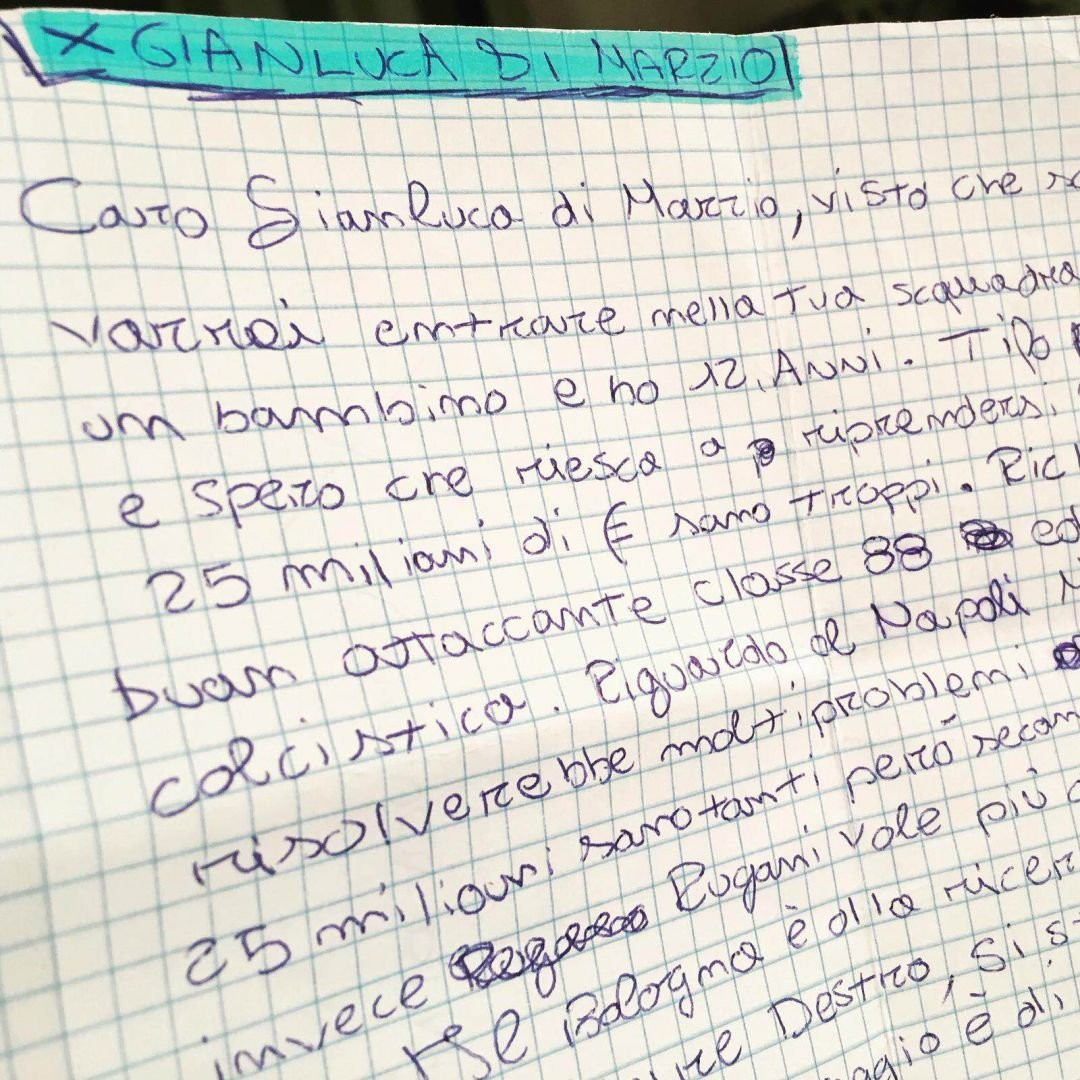 X GIANLUCA DI MARZIO
Caro Gianluca di Marzio, visto che
vorrei entrare nella tua squadra
un bambino e ho 12 ANNI. Tifo
e spero che riesca a riprendersi.
25 milioni di € sono troppi.
buon attaccante classe 88 ed
calcistica. Riguardo al Napoli
risolverebbe molti problemi
25 milioni sono tanti però
invece Rugani vale più
Il Bologna è alla
Destro, si
è di